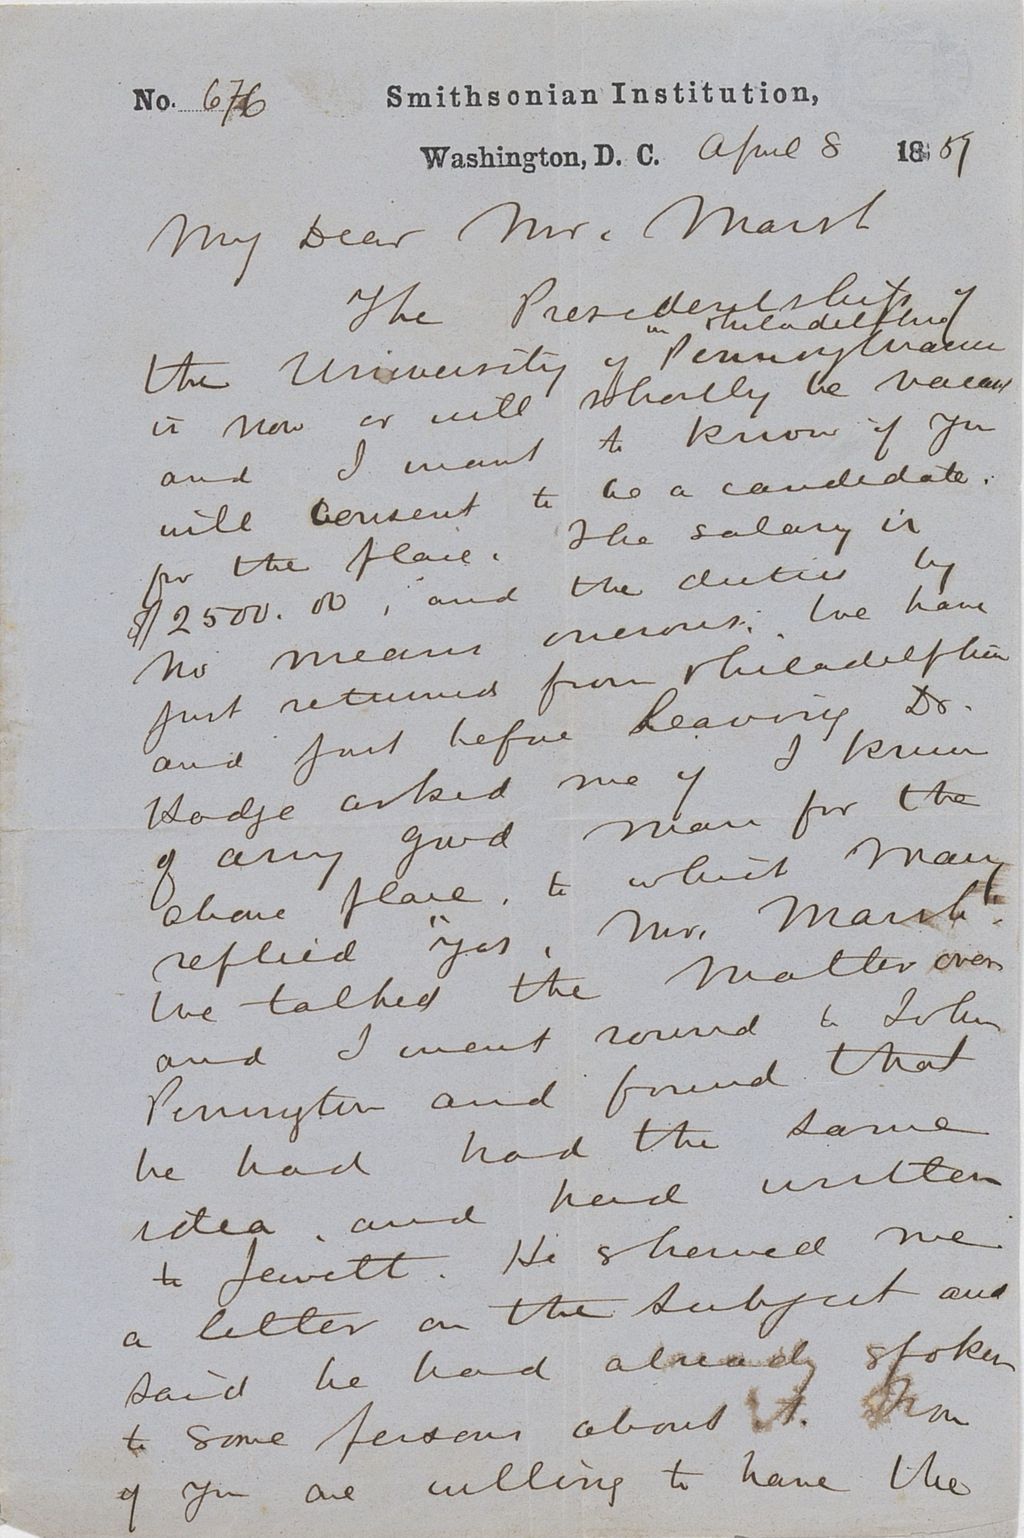 No. 676 Smithsonian Institution,
Washington, D. C. April 8 1859
My Dear Mr. Marsh
The Presidentship of
in Philadelphia
the University of Pennsylvania
is now or will shortly be vacant
and I want to know if you
will consent to be a candidate.
for the place. The salary is
$2500.00, and the duties by
no means onerous. We have
just returned from Philadelphia
and just before leaving Dr.
Hodge asked me if I knew
of any good man for the
above place, to which Mary
replied "Yes, Mr. Marsh".
We talked the matter over
and I went round to John
Pennington and found that
he had had the same
idea, and had written
to Jewett. He showed me
a letter on the subject and
said he had already spoken
to some persons about it. Now
if you are willing to have the